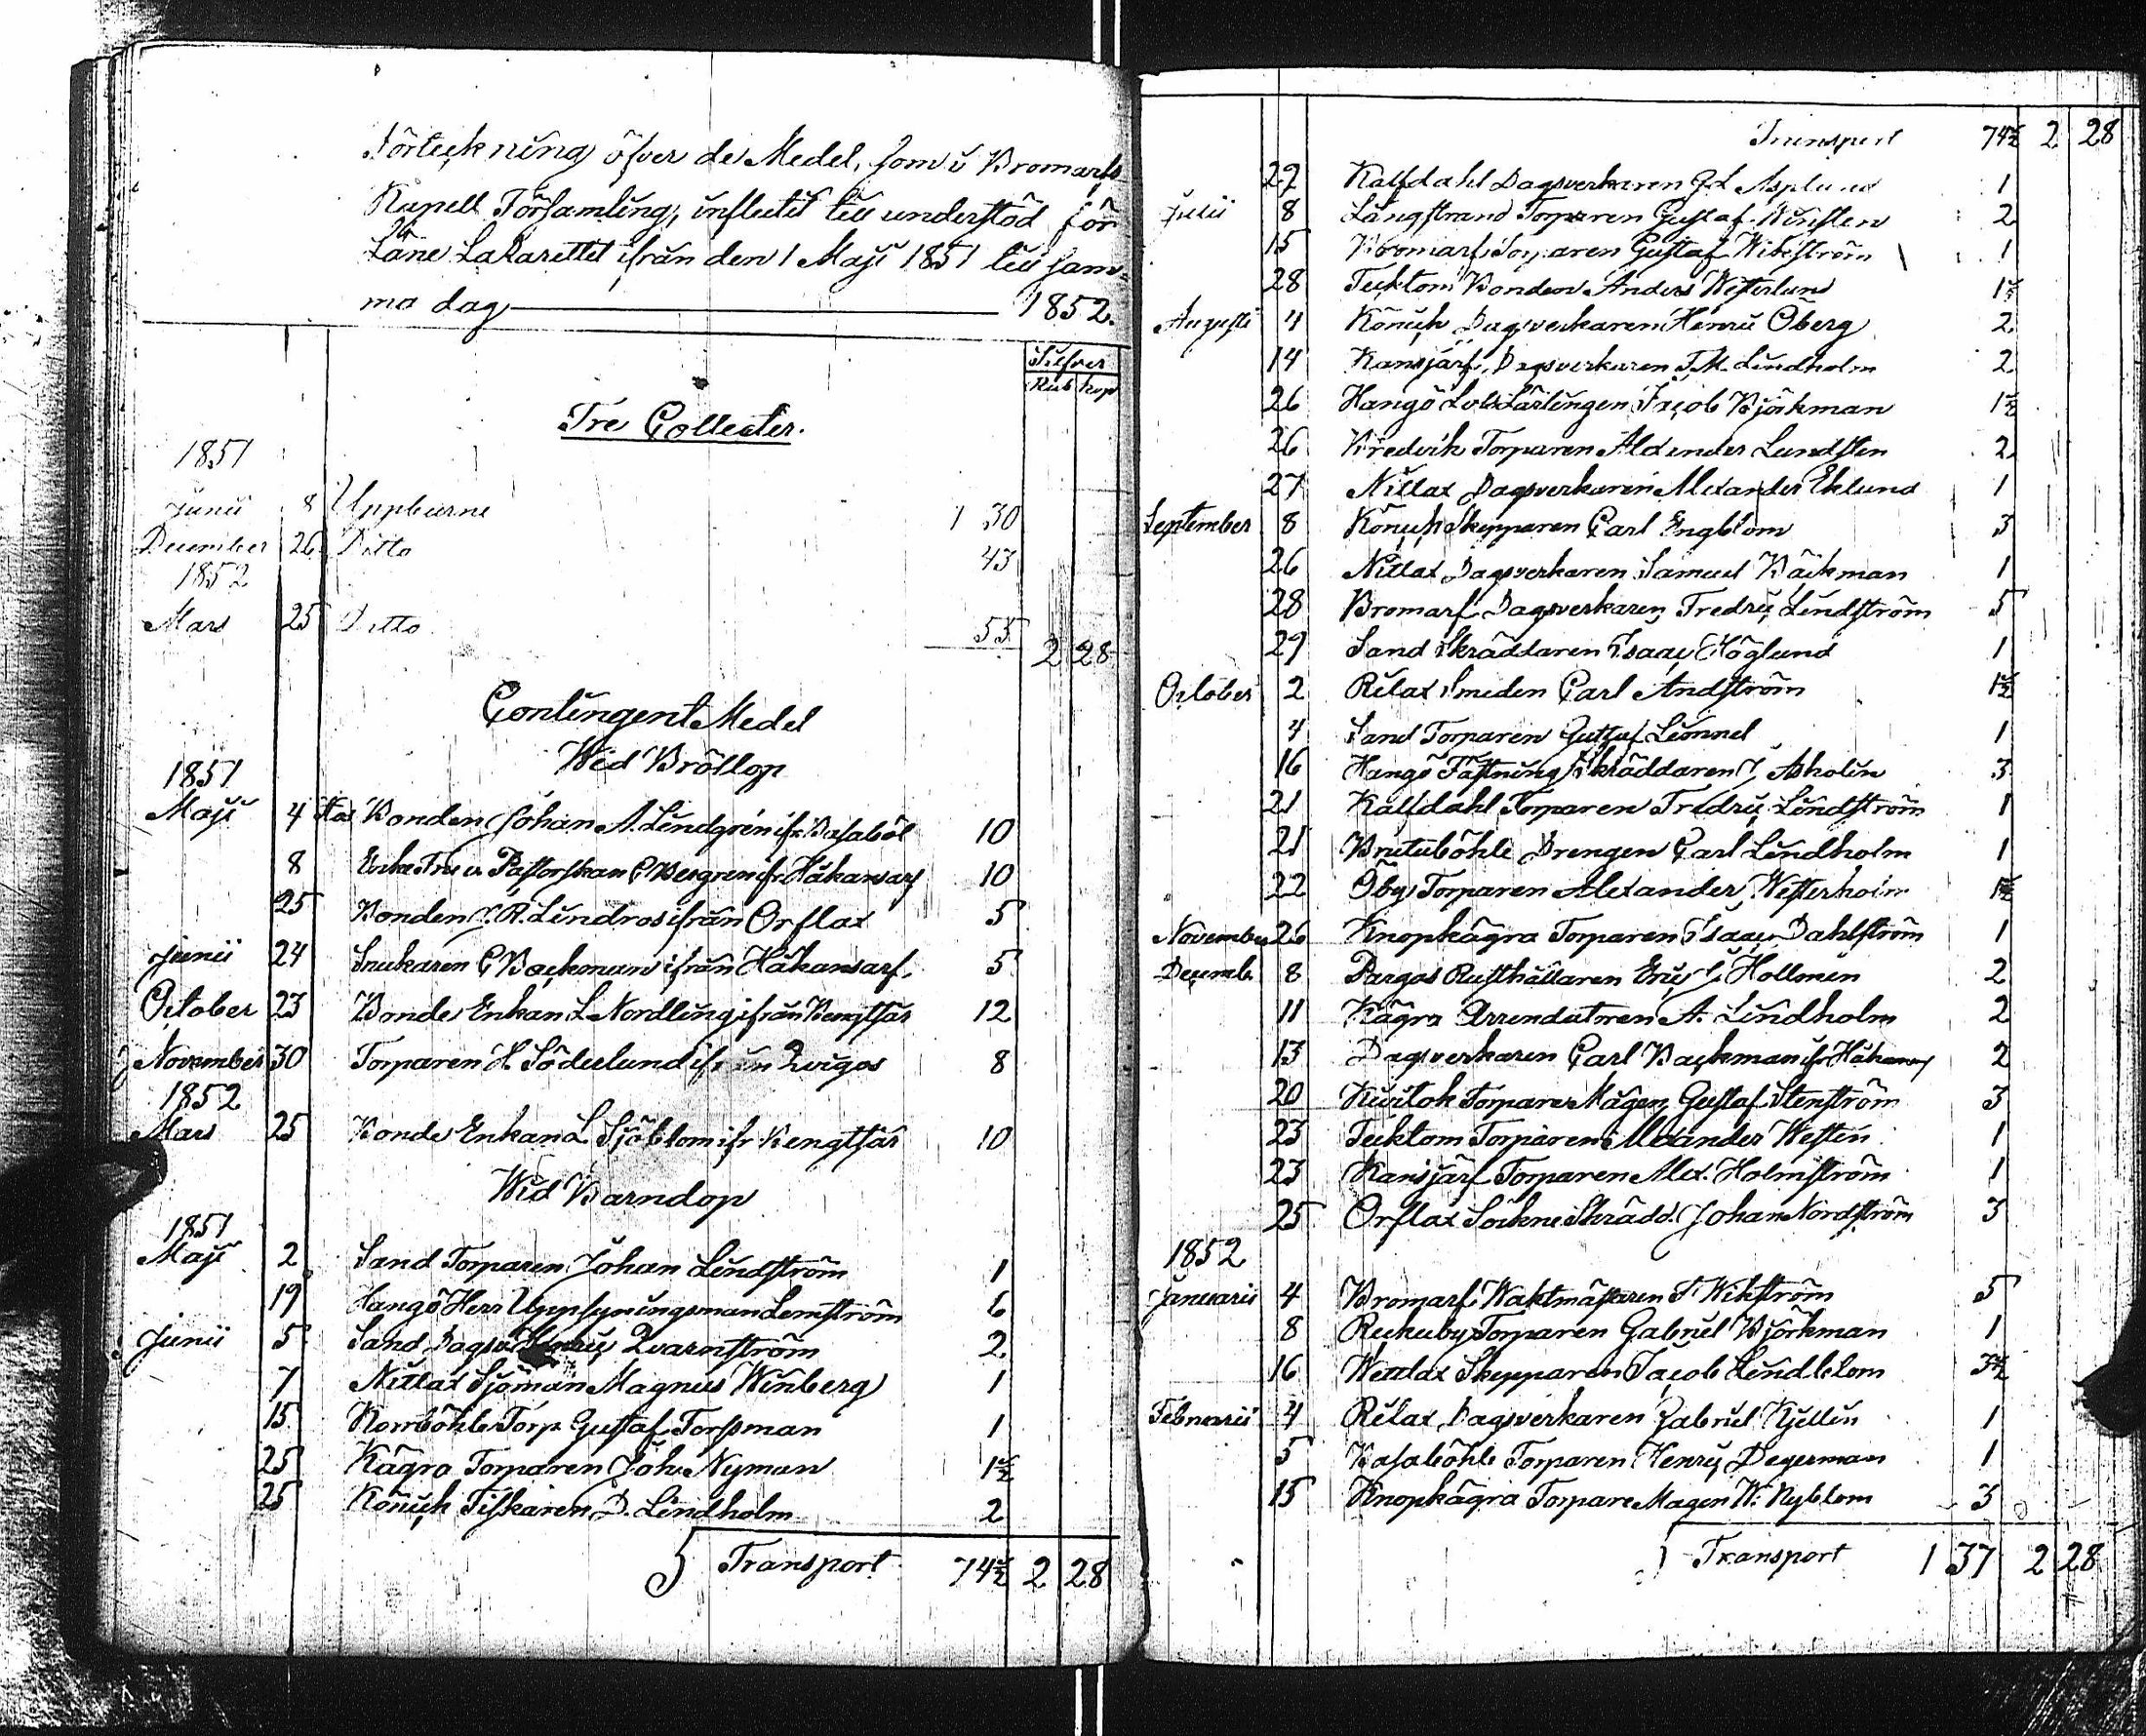 Förteckning öfver de Medel, som i Bromarfs
Kapell Församling, influtit till understöd för
Läne Lazarettet ifrån den 1 Maji 1851 till sam-
ma dag 1852.
Silfver
Rub kop
Tre Collecter.
1851
Junii 8 Uppburne 1 30
December 26 Ditto 43
1852
Mars 25 Ditto 55
2 28
Contingent Medel
Wid Bröllop
1851
Maji 4 Hos Bonden Johan A. Lindgrén ifr. Basaböl 10
8 Enke Fru Pastorskan C Bergren ifr. Håkansarf 10
25 Bonden J. R. Lindros ifrån Orslax 5
Junii 24 Snickaren C Backman ifrån Håkansarf 5
October 23 Bonde Enkan L Nordling ifrån Bengtsår 12
November 30 Torparen H. Söderlund ifrån Qvigos 8
1852
Mars 25 Bonde Enkan L Sjöblom ifr Bengtsår 10
Wid Barndop
1851
Maji 2 Sand Torparen Johan Lindström 1
19 Hangö Herr Uppsyningsman Lemström 6
Junii 5 Sand Dagsv Henric Qvarnström 2
7 Nitlax Sjöman Magnus Winberg 1
15 Norrböhle Torp. Gustaf Forssman 1
25 Kågra Torparen Joh. Nyman 1½
25 Könick Fiskaren D. Lindholm 2
Transport 74½ 2 28
Transport 74½ 2 28
22 Kalfdahl Dagsverkaren G. L Asplund 1
Julii 8 Långstrand Torparen Gustaf 2
15 Bromarf Torparen Gustaf Wikström 1
28 Täcktom Bonden Anders Westerlund 1½
Augusti 4 Könick Dagsverkaren Henric Öberg 2
14 Kansjärf Dagsverkaren F. M. Lindholm 2
26 Hangö Lots Lärlingen Jacob Björkman 1½
26 Bredvik Torparen Alexander Lundsten 2
27 Nitlax Dagsverkaren Alexander Eklund 1
September 8 Könick Skepparen Carl Engblom 3
26 Nitlax Dagsverkaren Samuel Bäckman 1
28 Bromarf Dagsverkaren Fredric Lindström 5
29 Sand Skräddaren Isaac Höglund 1
October 2 Rilax Smeden Carl Andström 1½
4 Sand Torparen Gustaf Lönnel 1
16 Hangö Fästning Skräddaren J. Asholin 3
21 Kalfdahl Torparen Fredric Lindström 1
21 Brutuböhle Drengen Carl Lindholm 1
22 Öby Torparen Alexander Westerholm 1½
November 26 Knopkägra Torparen Isaac Dahlström 1
Decemb. 8 Pargas Rusthållaren Eric J. Hollmén 2
11 Kågra Arrendatoren A. Lindholm 2
13 Dagsverkaren Carl Backman ifr Håkansarf 2
20 Kivitok Torpare Mågen Gustaf Stenström 3
23 Täcktom Torparen Alexander Westén 1
23 Kansjärf Torparen Alex. Holmström 1
25 Orslax Sockne Skrädd. Johan Nordström 3
1852
Januarii 4 Bromarf Waktmästaren F. Wikström 5
8 Rekuby Torparen Gabriel Björkman 1
16 Wettlax Skepparen Jacob Lindblom 3½
Februarii 4 Rilax Dagsverkaren Gabriel Kjellin 1
5 Basaböhle Torparen Henric Degerman 1
15 Knopkägra Torpare Mågen W. Nyblom 3
Transport 1 37 2 28